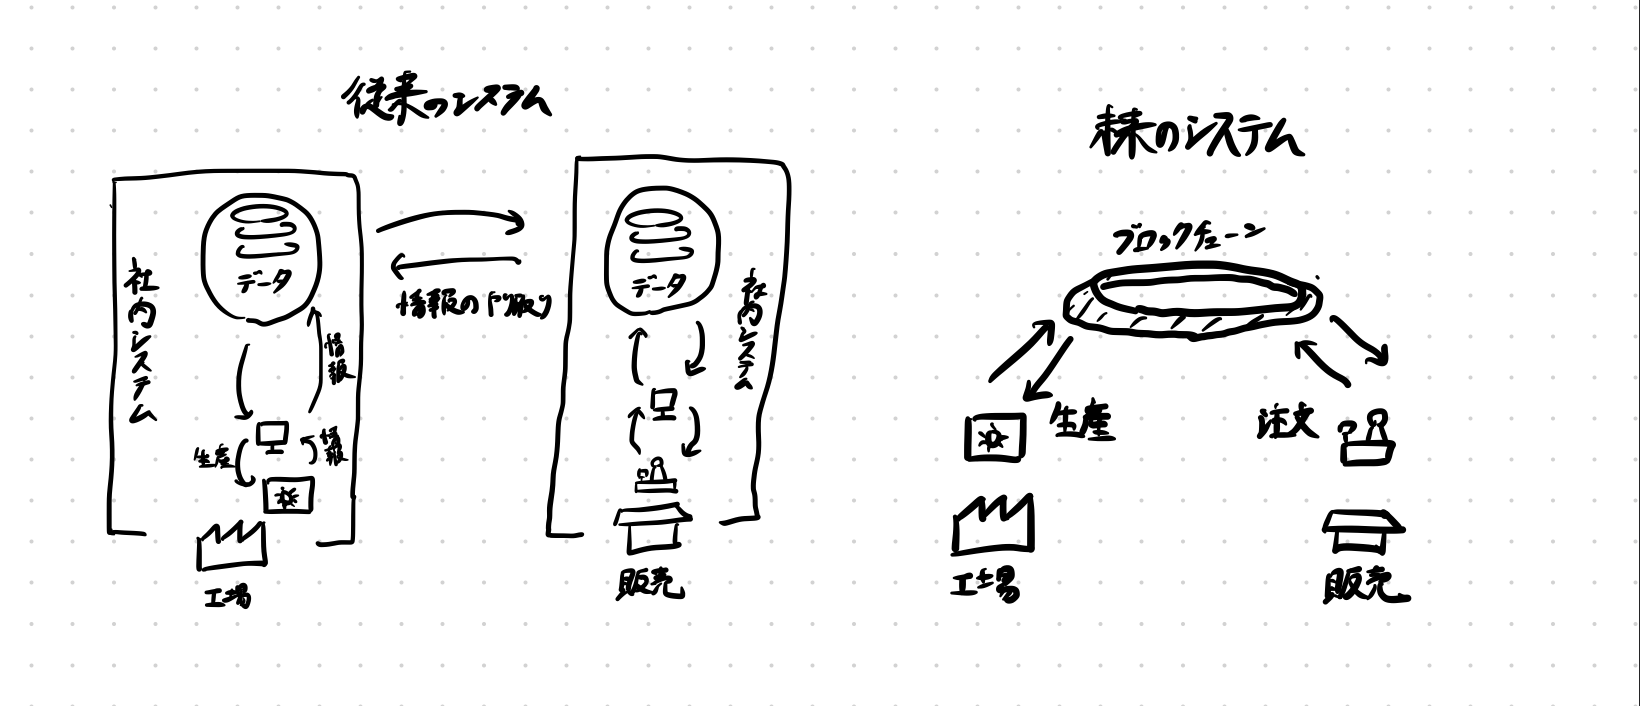 従来のシステム
社内システム
データ
情報
生産
情報
工場
情報のやり取り
データ
社内システム
販売
株のシステム
ブロックチェーン
生産
注文
工場
販売